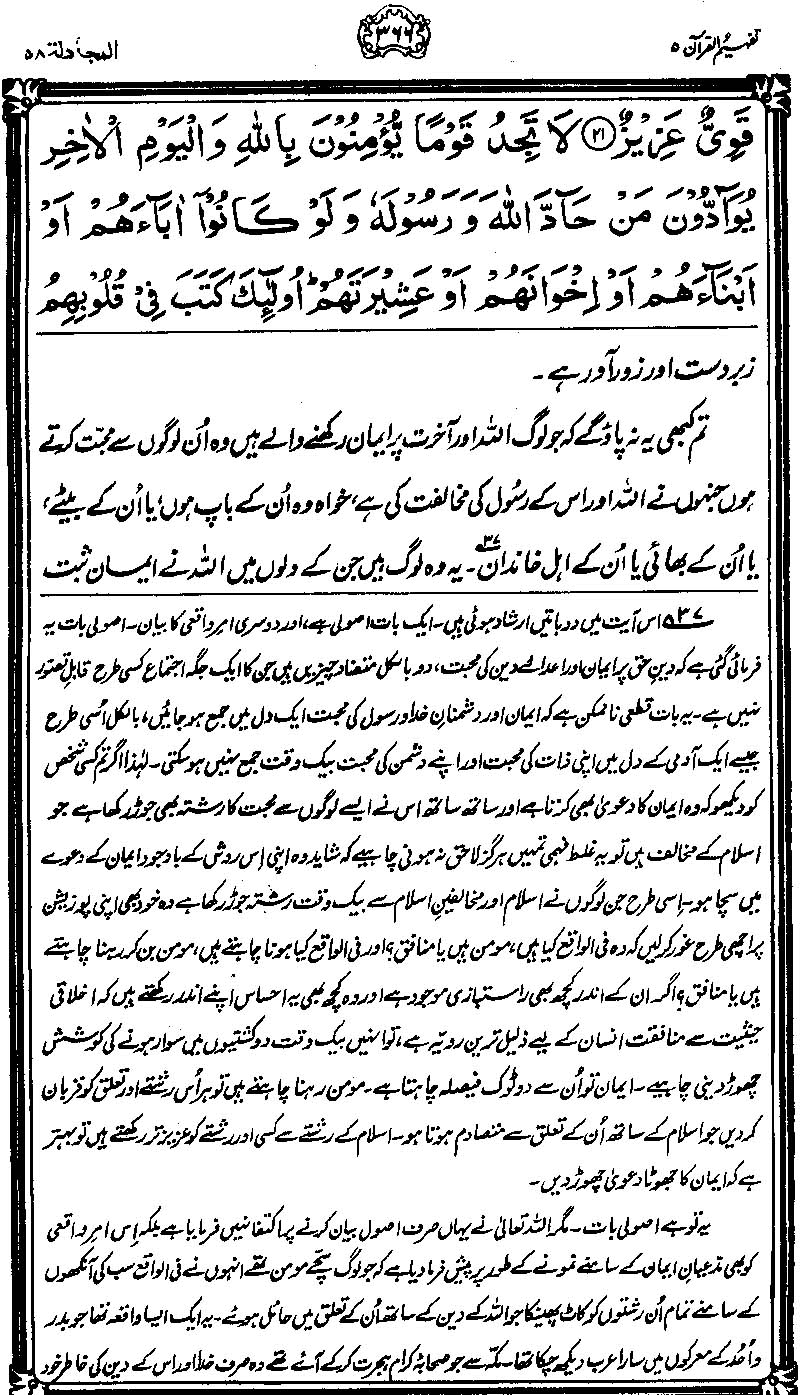 تفہیم القرآن ۵
۳۶۶
المجادلة ۵۸
قَوِيٌّ عَزِيْزٌ ﴿۲۱﴾ لَا تَجِدُ قَوْمًا يُّؤْمِنُوْنَ بِاللّٰهِ وَالْيَوْمِ الْاٰخِرِ
يُوَآدُّوْنَ مَنْ حَآدَّ اللّٰهَ وَرَسُوْلَهٗ وَلَوْ كَانُوْٓا اٰبَآءَهُمْ اَوْ
اَبْنَآءَهُمْ اَوْ اِخْوَانَهُمْ اَوْ عَشِيْرَتَهُمْ ؕ اُولٰٓئِكَ كَتَبَ فِيْ قُلُوْبِهِمُ
زبردست اور زور آور ہے۔
تم کبھی یہ نہ پاؤ گے کہ جو لوگ اللہ اور آخرت پر ایمان رکھنے والے ہیں وہ اُن لوگوں سے محبّت کرتے
ہوں جنہوں نے اللہ اور اس کے رسُول کی مخالفت کی ہے، خواہ وہ اُن کے باپ ہوں، یا اُن کے بیٹے،
یا اُن کے بھائی یا اُن کے اہلِ خاندان۳۷۔ یہ وہ لوگ ہیں جن کے دلوں میں اللہ نے ایمان ثبت
۳۷؎ اس آیت میں دو باتیں ارشاد ہوئی ہیں۔ ایک بات اصولی ہے، اور دوسری امرِ واقعی کا بیان۔ اصولی بات یہ
فرمائی گئی ہے کہ دینِ حق پر ایمان اور اعدائے دین کی محبت، دو بالکل متضاد چیزیں ہیں جن کا ایک جگہ اجتماع کسی طرح قابلِ تصوّر
نہیں ہے۔ یہ بات قطعی ناممکن ہے کہ ایمان اور دشمنانِ خدا و رسول کی محبت ایک دل میں جمع ہو جائیں، بالکل اُسی طرح
جیسے ایک آدمی کے دل میں اپنی ذات کی محبت اور اپنے دشمن کی محبت بیک وقت جمع نہیں ہو سکتی۔ لہٰذا اگر تم کسی شخص
کو دیکھو کہ وہ ایمان کا دعویٰ بھی کرتا ہے اور ساتھ ساتھ اس نے ایسے لوگوں سے محبت کا رشتہ بھی جوڑ رکھا ہے جو
اسلام کے مخالف ہیں تو یہ غلط فہمی تمہیں ہرگز لاحق نہ ہونی چاہیے کہ شاید وہ اپنی اِس روش کے باوجود ایمان کے دعوے
میں سچا ہو۔ اِسی طرح جن لوگوں نے اسلام اور مخالفینِ اسلام سے بیک وقت رشتہ جوڑ رکھا ہے وہ خود بھی اپنی پوزیشن
پر اچھی طرح غور کر لیں کہ وہ فی الواقع کیا ہیں، مومن ہیں یا منافق؟ اور فی الواقع کیا ہونا چاہتے ہیں، مومن بن کر رہنا چاہتے
ہیں یا منافق؟ اگر ان کے اندر کچھ بھی راستبازی موجود ہے اور وہ کچھ بھی یہ احساس اپنے اندر رکھتے ہیں کہ اخلاقی
حیثیت سے منافقت انسان کے لیے ذلیل ترین رویّہ ہے، تو انہیں بیک وقت دو کشتیوں میں سوار ہونے کی کوشش
چھوڑ دینی چاہیے۔ ایمان تو اُن سے دو ٹوک فیصلہ چاہتا ہے۔ مومن رہنا چاہتے ہیں تو ہر اُس رشتے اور تعلق کو قربان
کر دیں جو اسلام کے ساتھ اُن کے تعلق سے متصادم ہوتا ہو۔ اسلام کے رشتے سے کسی اور رشتے کو عزیز تر رکھتے ہیں تو بہتر
ہے کہ ایمان کا جھوٹا دعویٰ چھوڑ دیں۔
یہ تو ہے اصولی بات۔ مگر اللہ تعالیٰ نے یہاں صرف اصول بیان کرنے پر اکتفا نہیں فرمایا ہے بلکہ اِس امرِ واقعی
کو بھی مدعیانِ ایمان کے سامنے نمونے کے طور پر پیش فرما دیا ہے کہ جو لوگ سچّے مومن تھے انہوں نے فی الواقع سب کی آنکھوں
کے سامنے تمام اُن رشتوں کو کاٹ پھینکا جو اللہ کے دین کے ساتھ اُن کے تعلق میں حائل ہوئے۔ یہ ایک ایسا واقعہ تھا جو بدر
و اُحُد کے معرکوں میں سارا عرب دیکھ چکا تھا۔ مکّہ سے جو صحابۂ کرام ہجرت کر کے آئے تھے وہ صرف خدا اور اس کے دین کی خاطر خود